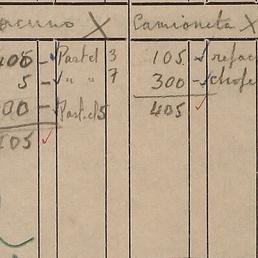 Camioneta X
05 - Pastel 3 105 refac
5 - " " 7 300 - chofe
00 - Pastel 5 405
05